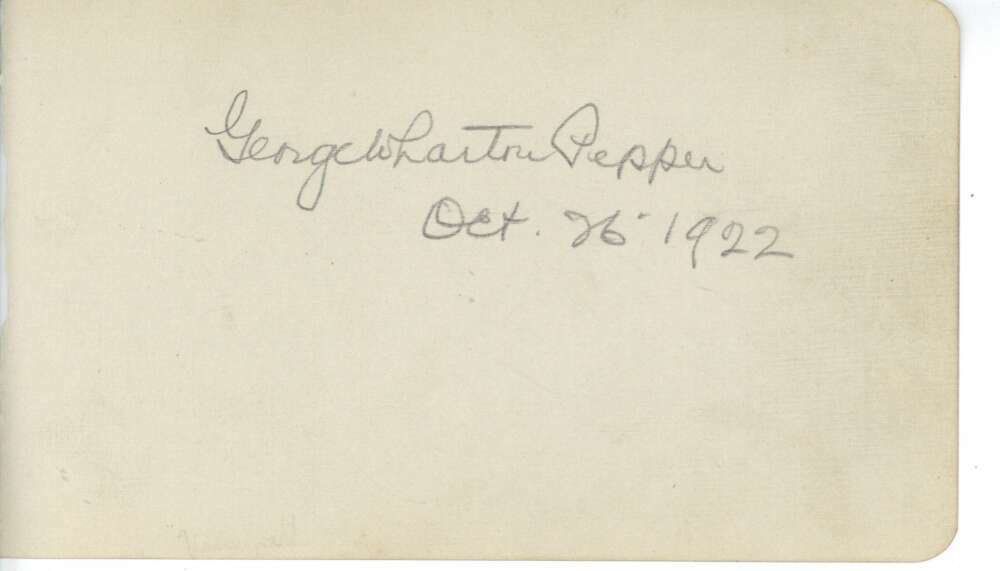 George Wharton Pepper
Oct. 26 1922